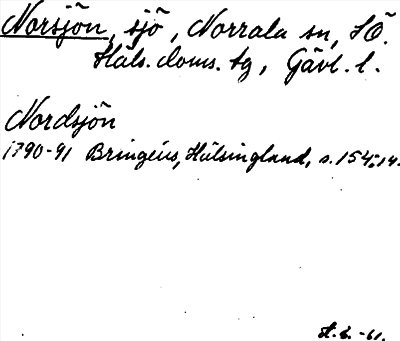 Norsjön, sjö, Norrala sn, SÖ.
Häls. doms. tg, Gävl. l.
Nordsjön
1790-91 Bringéus, Hälsingland, s. 154:14.
-61.